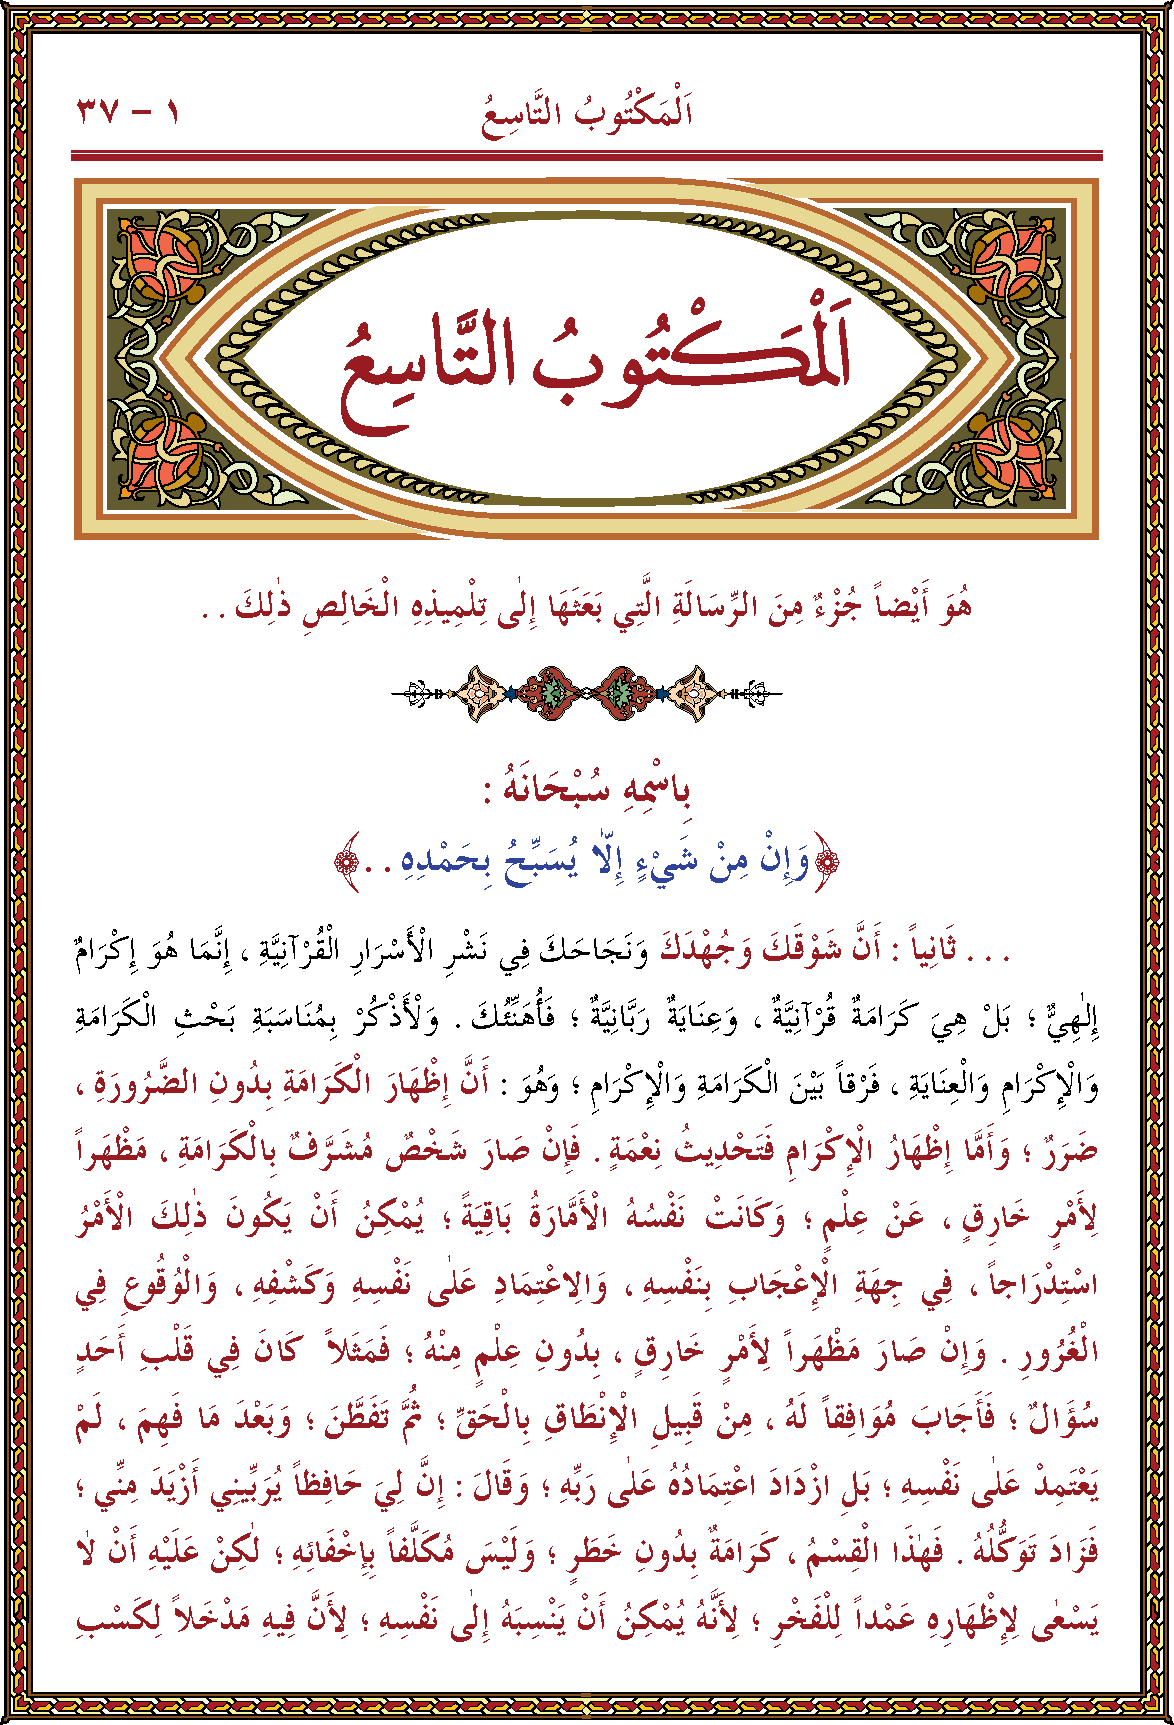 اَلْمَكْتُوبُ التَّاسِعُ
١ – ٣٧
اَلْمَكْتُوبُ التَّاسِعُ
هُوَ أَيْضاً جُزْءٌ مِنَ الرِّسَالَةِ الَّتِي بَعَثَهَا إِلٰى تِلْمِيذِهِ الْخَالِصِ ذٰلِكَ . .
بِاسْمِهِ سُبْحَانَهُ :
﴿وَإِنْ مِنْ شَيْءٍ إِلَّا يُسَبِّحُ بِحَمْدِهِ . .﴾
. . . ثَانِياً : أَنَّ شَوْقَكَ وَجُهْدَكَ وَنَجَاحَكَ فِي نَشْرِ الْأَسْرَارِ الْقُرْآنِيَّةِ ، إِنَّمَا هُوَ إِكْرَامٌ
إِلٰهِيٌّ ؛ بَلْ هِيَ كَرَامَةٌ قُرْآنِيَّةٌ ، وَعِنَايَةٌ رَبَّانِيَّةٌ ؛ فَأُهَنِّئُكَ . وَلْأَذْكُرْ بِمُنَاسَبَةِ بَحْثِ الْكَرَامَةِ
وَالْإِكْرَامِ وَالْعِنَايَةِ ، فَرْقاً بَيْنَ الْكَرَامَةِ وَالْإِكْرَامِ ؛ وَهُوَ : أَنَّ إِظْهَارَ الْكَرَامَةِ بِدُونِ الضَّرُورَةِ ،
ضَرَرٌ ؛ وَأَمَّا إِظْهَارُ الْإِكْرَامِ فَتَحْدِيثُ نِعْمَةٍ . فَإِنْ صَارَ شَخْصٌ مُشَرَّفٌ بِالْكَرَامَةِ ، مَظْهَراً
لِأَمْرٍ خَارِقٍ ، عَنْ عِلْمٍ ؛ وَكَانَتْ نَفْسُهُ الْأَمَّارَةُ بَاقِيَةً ؛ يُمْكِنُ أَنْ يَكُونَ ذٰلِكَ الْأَمْرُ
اسْتِدْرَاجاً ، فِي جِهَةِ الْإِعْجَابِ بِنَفْسِهِ ، وَالِاعْتِمَادِ عَلٰى نَفْسِهِ وَكَشْفِهِ ، وَالْوُقُوعِ فِي
الْغُرُورِ . وَإِنْ صَارَ مَظْهَراً لِأَمْرٍ خَارِقٍ ، بِدُونِ عِلْمٍ مِنْهُ ؛ فَمَثَلاً كَانَ فِي قَلْبِ أَحَدٍ
سُؤَالٌ ؛ فَأَجَابَ مُوَافِقاً لَهُ ، مِنْ قَبِيلِ الْإِنْطَاقِ بِالْحَقِّ ؛ ثُمَّ تَفَطَّنَ ؛ وَبَعْدَ مَا فَهِمَ ، لَمْ
يَعْتَمِدْ عَلٰى نَفْسِهِ ؛ بَلِ ازْدَادَ اعْتِمَادُهُ عَلٰى رَبِّهِ ؛ وَقَالَ : إِنَّ لِيَ حَافِظاً يُرَبِّينِي أَزْيَدَ مِنِّي ؛
فَزَادَ تَوَكُّلُهُ . فَهٰذَا الْقِسْمُ ، كَرَامَةٌ بِدُونِ خَطَرٍ ؛ وَلَيْسَ مُكَلَّفاً بِإِخْفَائِهِ ؛ لٰكِنْ عَلَيْهِ أَنْ لَا
يَسْعٰى لِإِظْهَارِهِ عَمْداً لِلْفَخْرِ ؛ لِأَنَّهُ يُمْكِنُ أَنْ يَنْسِبَهُ إِلٰى نَفْسِهِ ؛ لِأَنَّ فِيهِ مَدْخَلاً لِكَسْبِ